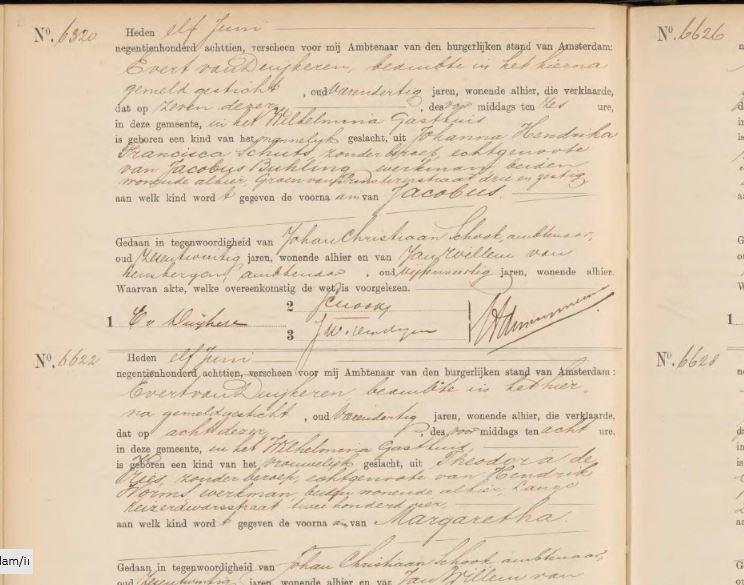 Nº. 6320
Heden elf Juni
negentienhonderd achttien, verscheen voor mij Ambtenaar van den burgerlijken stand van Amsterdam:
Evert van Duijkeren, beambte in het hierna
gemeld gesticht, oud jaren, wonende alhier, die verklaarde,
dat op zeven dezer, des voor middags ten zes ure,
in deze gemeente, in het Wilhelmina Gasthuis
is geboren een kind van het mannelijk geslacht, uit Johanna Hendrika
Francisca Schuts, zonder beroep, echtgenoote
van Jacobus Buhling, werkman, beiden
wonende alhier, straat drie en zestig
aan welk kind word t gegeven de voorna am van Jacobus.
Gedaan in tegenwoordigheid van Johan Christiaan Schook, ambtenaar,
oud jaren, wonende alhier en van Jan Willem van
ambtenaar, oud jaren, wonende alhier.
Waarvan akte, welke overeenkomstig de wet is voorgelezen.
1 2 3
Nº. 6622
Heden elf Juni
negentienhonderd achttien, verscheen voor mij Ambtenaar van den burgerlijken stand van Amsterdam:
Evert van Duijkeren beambte in het hier-
na gemeld gesticht, oud jaren, wonende alhier, die verklaarde,
dat op acht dezer, des voor middags ten acht ure,
in deze gemeente, in het Wilhelmina Gasthuis
is geboren een kind van het vrouwelijk geslacht, uit Theodora de
zonder beroep, echtgenoote van Hendrik
Worms, werkman, beiden wonende alhier, Lange
straat twee honderd vier,
aan welk kind word t gegeven de voorna am van Margaretha.
Gedaan in tegenwoordigheid van Johan Christiaan Schook, ambtenaar,
oud jaren, wonende alhier en van Jan Willem van
Nº. 6626
1
Nº. 6628